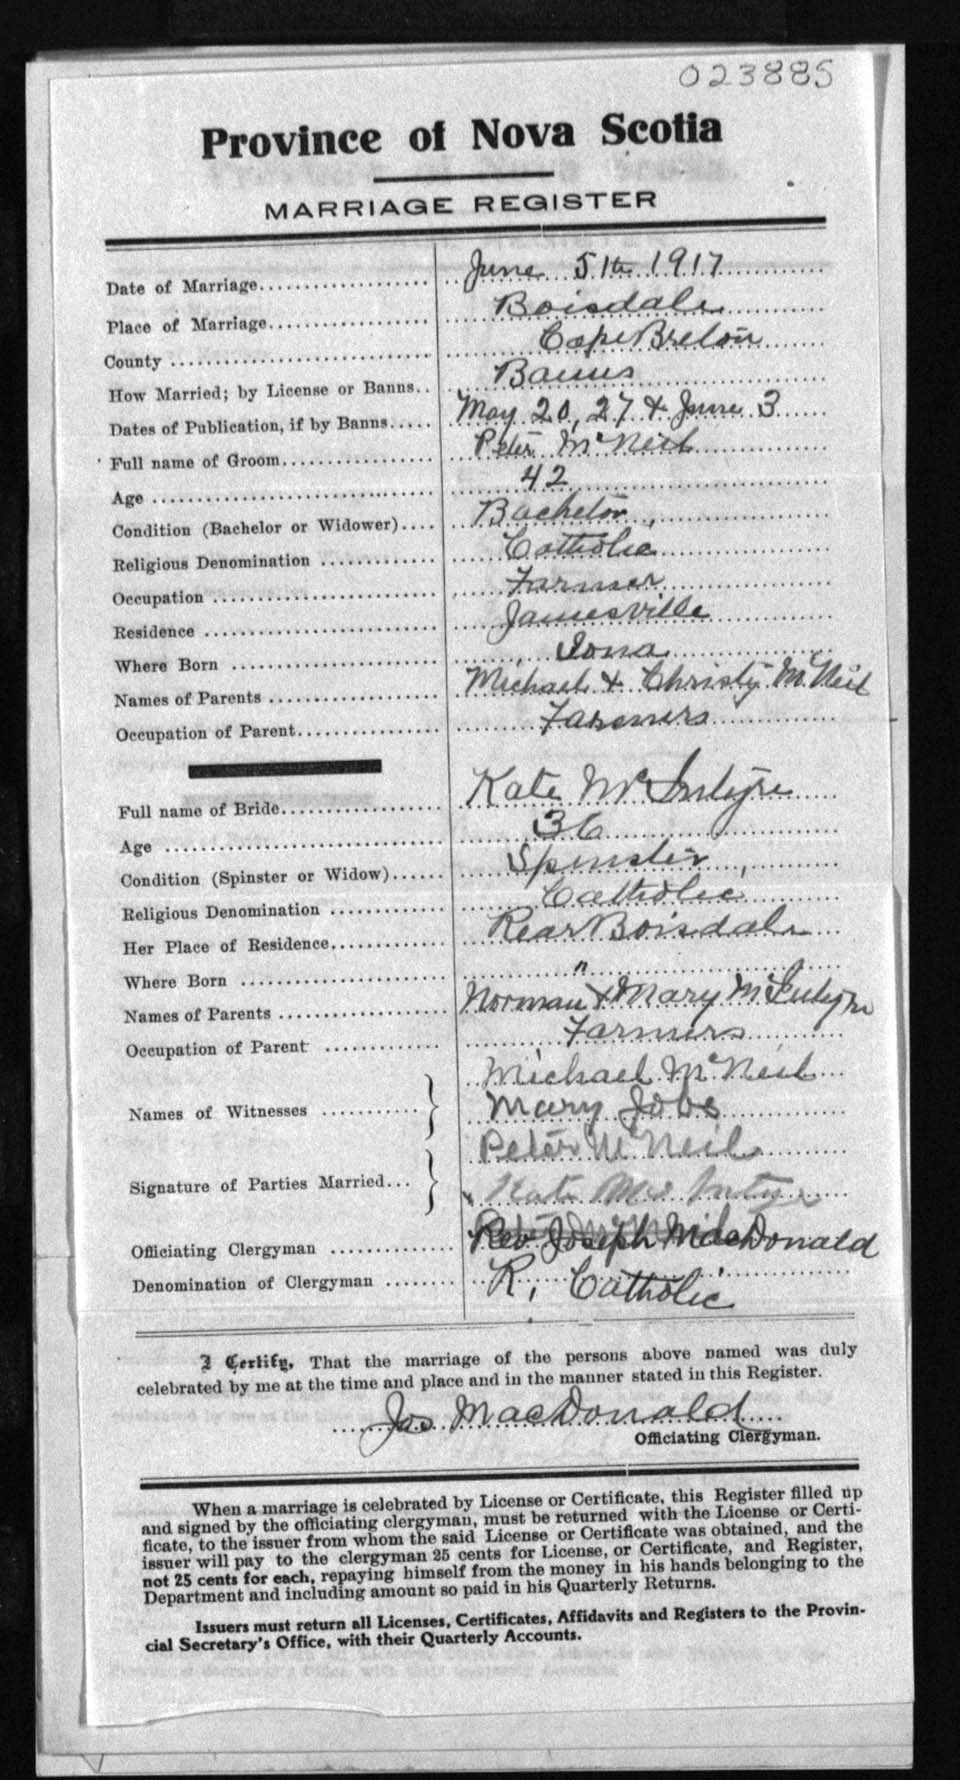 023885
Province of Nova Scotia
MARRIAGE REGISTER
Date of Marriage.................... June 5th 1917
Place of Marriage................... Boisdale
County .............................. Cape Breton
How Married; by License or Banns.. Banns
Dates of Publication, if by Banns..... May 20, 27 & June 3
Full name of Groom.................. Peter McNeil
Age ................................. 42
Condition (Bachelor or Widower).... Bachelor
Religious Denomination ............. Catholic
Occupation .......................... Farmer
Residence ........................... Jamesville
Where Born ......................... Iona
Names of Parents ................... Michael & Christy McNeil
Occupation of Parent................ Farmers
Full name of Bride................... Kate McIntyre
Age ................................. 36
Condition (Spinster or Widow)...... Spinster
Religious Denomination ............. Catholic
Her Place of Residence.............. Rear Boisdale
Where Born ......................... "
Names of Parents ................... Norman & Mary McIntyre
Occupation of Parent ............... Farmers
Michael McNeil
Names of Witnesses ........... } Mary Jobs
Peter McNeil
Signature of Parties Married... } Kate McIntyre
Officiating Clergyman .............. Rev Joseph MacDonald
Denomination of Clergyman ........ R. Catholic
I Certify, That the marriage of the persons above named was duly
celebrated by me at the time and place and in the manner stated in this Register.
Jos MacDonald
Officiating Clergyman.
When a marriage is celebrated by License or Certificate, this Register filled up
and signed by the officiating clergyman, must be returned with the License or Certi-
ficate, to the issuer from whom the said License or Certificate was obtained, and the
issuer will pay to the clergyman 25 cents for License, or Certificate, and Register,
not 25 cents for each, repaying himself from the money in his hands belonging to the
Department and including amount so paid in his Quarterly Returns.
Issuers must return all Licenses, Certificates, Affidavits and Registers to the Provin-
cial Secretary's Office, with their Quarterly Accounts.